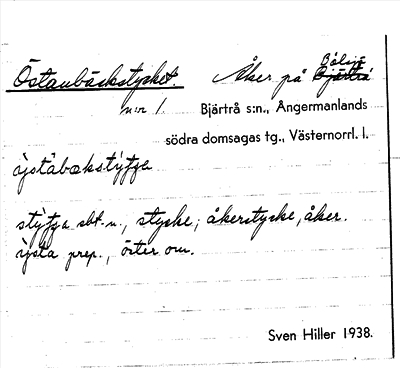 Östanbäckstycket. Åker på Bölsjö
nor 1 Bjärtrå s:n., Ångermanlands
södra domsagas tg., Västernorrl. l.
ỳstabækstýtja
stýtja sbt. n., stycke, åkerstycke, åker.
ỳsta prep., öster om.
Sven Hiller 1938.